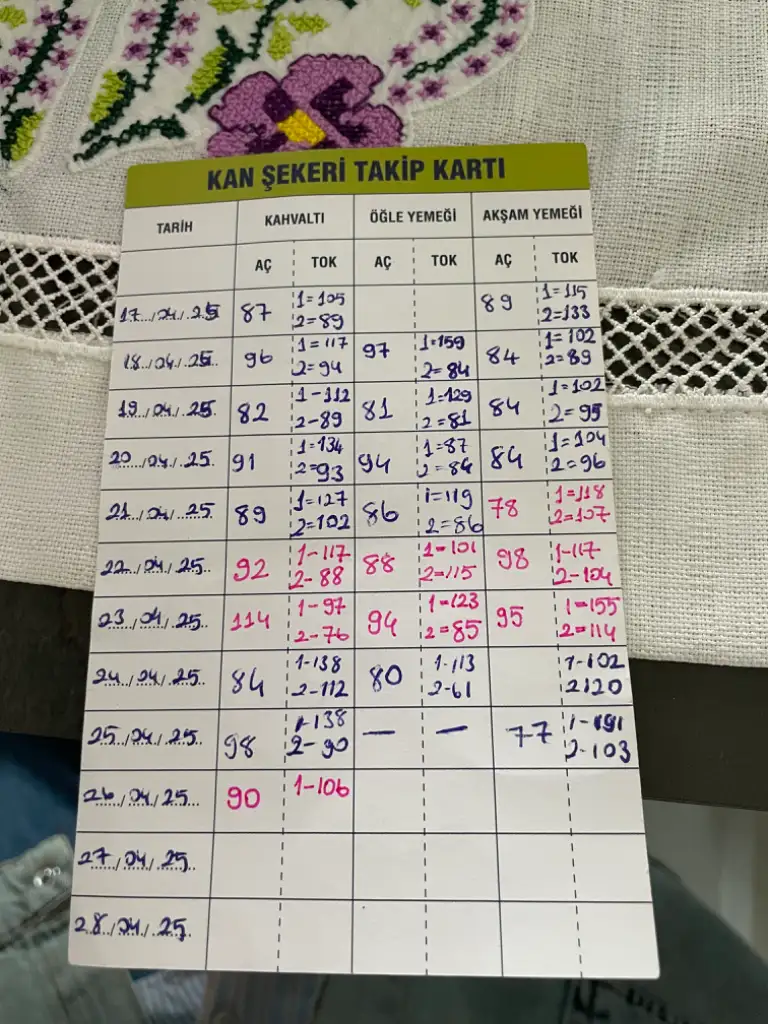 KAN ŞEKERİ TAKİP KARTI
TARİH KAHVALTI ÖĞLE YEMEĞİ AKŞAM YEMEĞİ
AÇ TOK AÇ TOK AÇ TOK
17/04/25 87 1=105 89 1=115
2=89 2=133
18/04/25 96 1=117 97 1=159 84 1=102
2=94 2=84 2=89
19/04/25 82 1-112 81 1=129 84 1=102
2-89 2=81 2=95
20/04/25 91 1=134 94 1=87 84 1=104
2=93 2=84 2=96
21/04/25 89 1=127 86 1=119 78 1=118
2=102 2=86 2=107
22/04/25 92 1-117 88 1=101 98 1-117
2-88 2=115 2-104
23/04/25 114 1-97 94 1=123 95 1=155
2-76 2=85 2=114
24/04/25 84 1-138 80 1-113 1-102
2-112 2-61 2120
25/04/25 98 1-138 — — 77 1-191
2-90 2-103
26/04/25 90 1-106
27/04/25
28/04/25